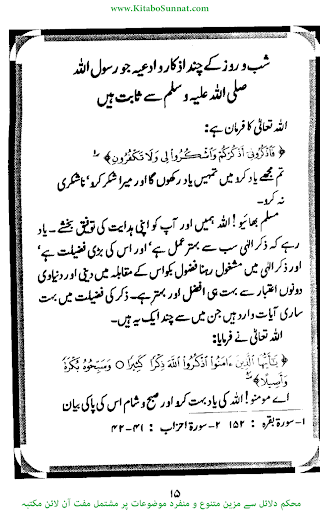 www.KitaboSunnat.com
شب و روز کے چند اذکار و ادعیہ جو رسول اللہ
صلی اللہ علیہ و سلم سے ثابت ہیں
اللہ تعالیٰ کا فرمان ہے:
﴿ فَاذْكُرُونِي أَذْكُرْكُمْ وَاشْكُرُوا لِي وَلَا تَكْفُرُونِ ﴾ ۱؎
تم مجھے یاد کرو میں تمہیں یاد رکھوں گا اور میرا شکر کرو‘ ناشکری
نہ کرو۔
مسلم بھائیو! اللہ ہمیں اور آپ کو اپنی ہدایت کی توفیق بخشے۔ یاد
رہے کہ ذکر الٰہی سب سے بہتر عمل ہے‘ اور اس کی بڑی فضیلت ہے‘
اور ذکر الٰہی میں مشغول رہنا فضول بکواس کے مقابلہ میں دینی اور دنیاوی
دونوں اعتبار سے بہت ہی افضل اور بہتر ہے۔ ذکر کی فضیلت میں بہت
ساری آیات وارد ہیں جن میں سے چند ایک یہ ہیں۔
اللہ تعالیٰ نے فرمایا:
﴿ يَـٰٓأَيُّهَا الَّذِينَ ءَامَنُوا اذْكُرُوا اللَّهَ ذِكْرًا كَثِيرًا ○ وَسَبِّحُوهُ بُكْرَةً
وَأَصِيلًا ﴾ ۲؎
اے مومنو! اللہ کی یاد بہت کرو اور صبح و شام اس کی پاکی بیان
۱- سورۃ بقرہ : ۱۵۲ ۲- سورۃ احزاب : ۴۱-۴۲
۱۵
محکم دلائل سے مزین متنوع و منفرد موضوعات پر مشتمل مفت آن لائن مکتبہ